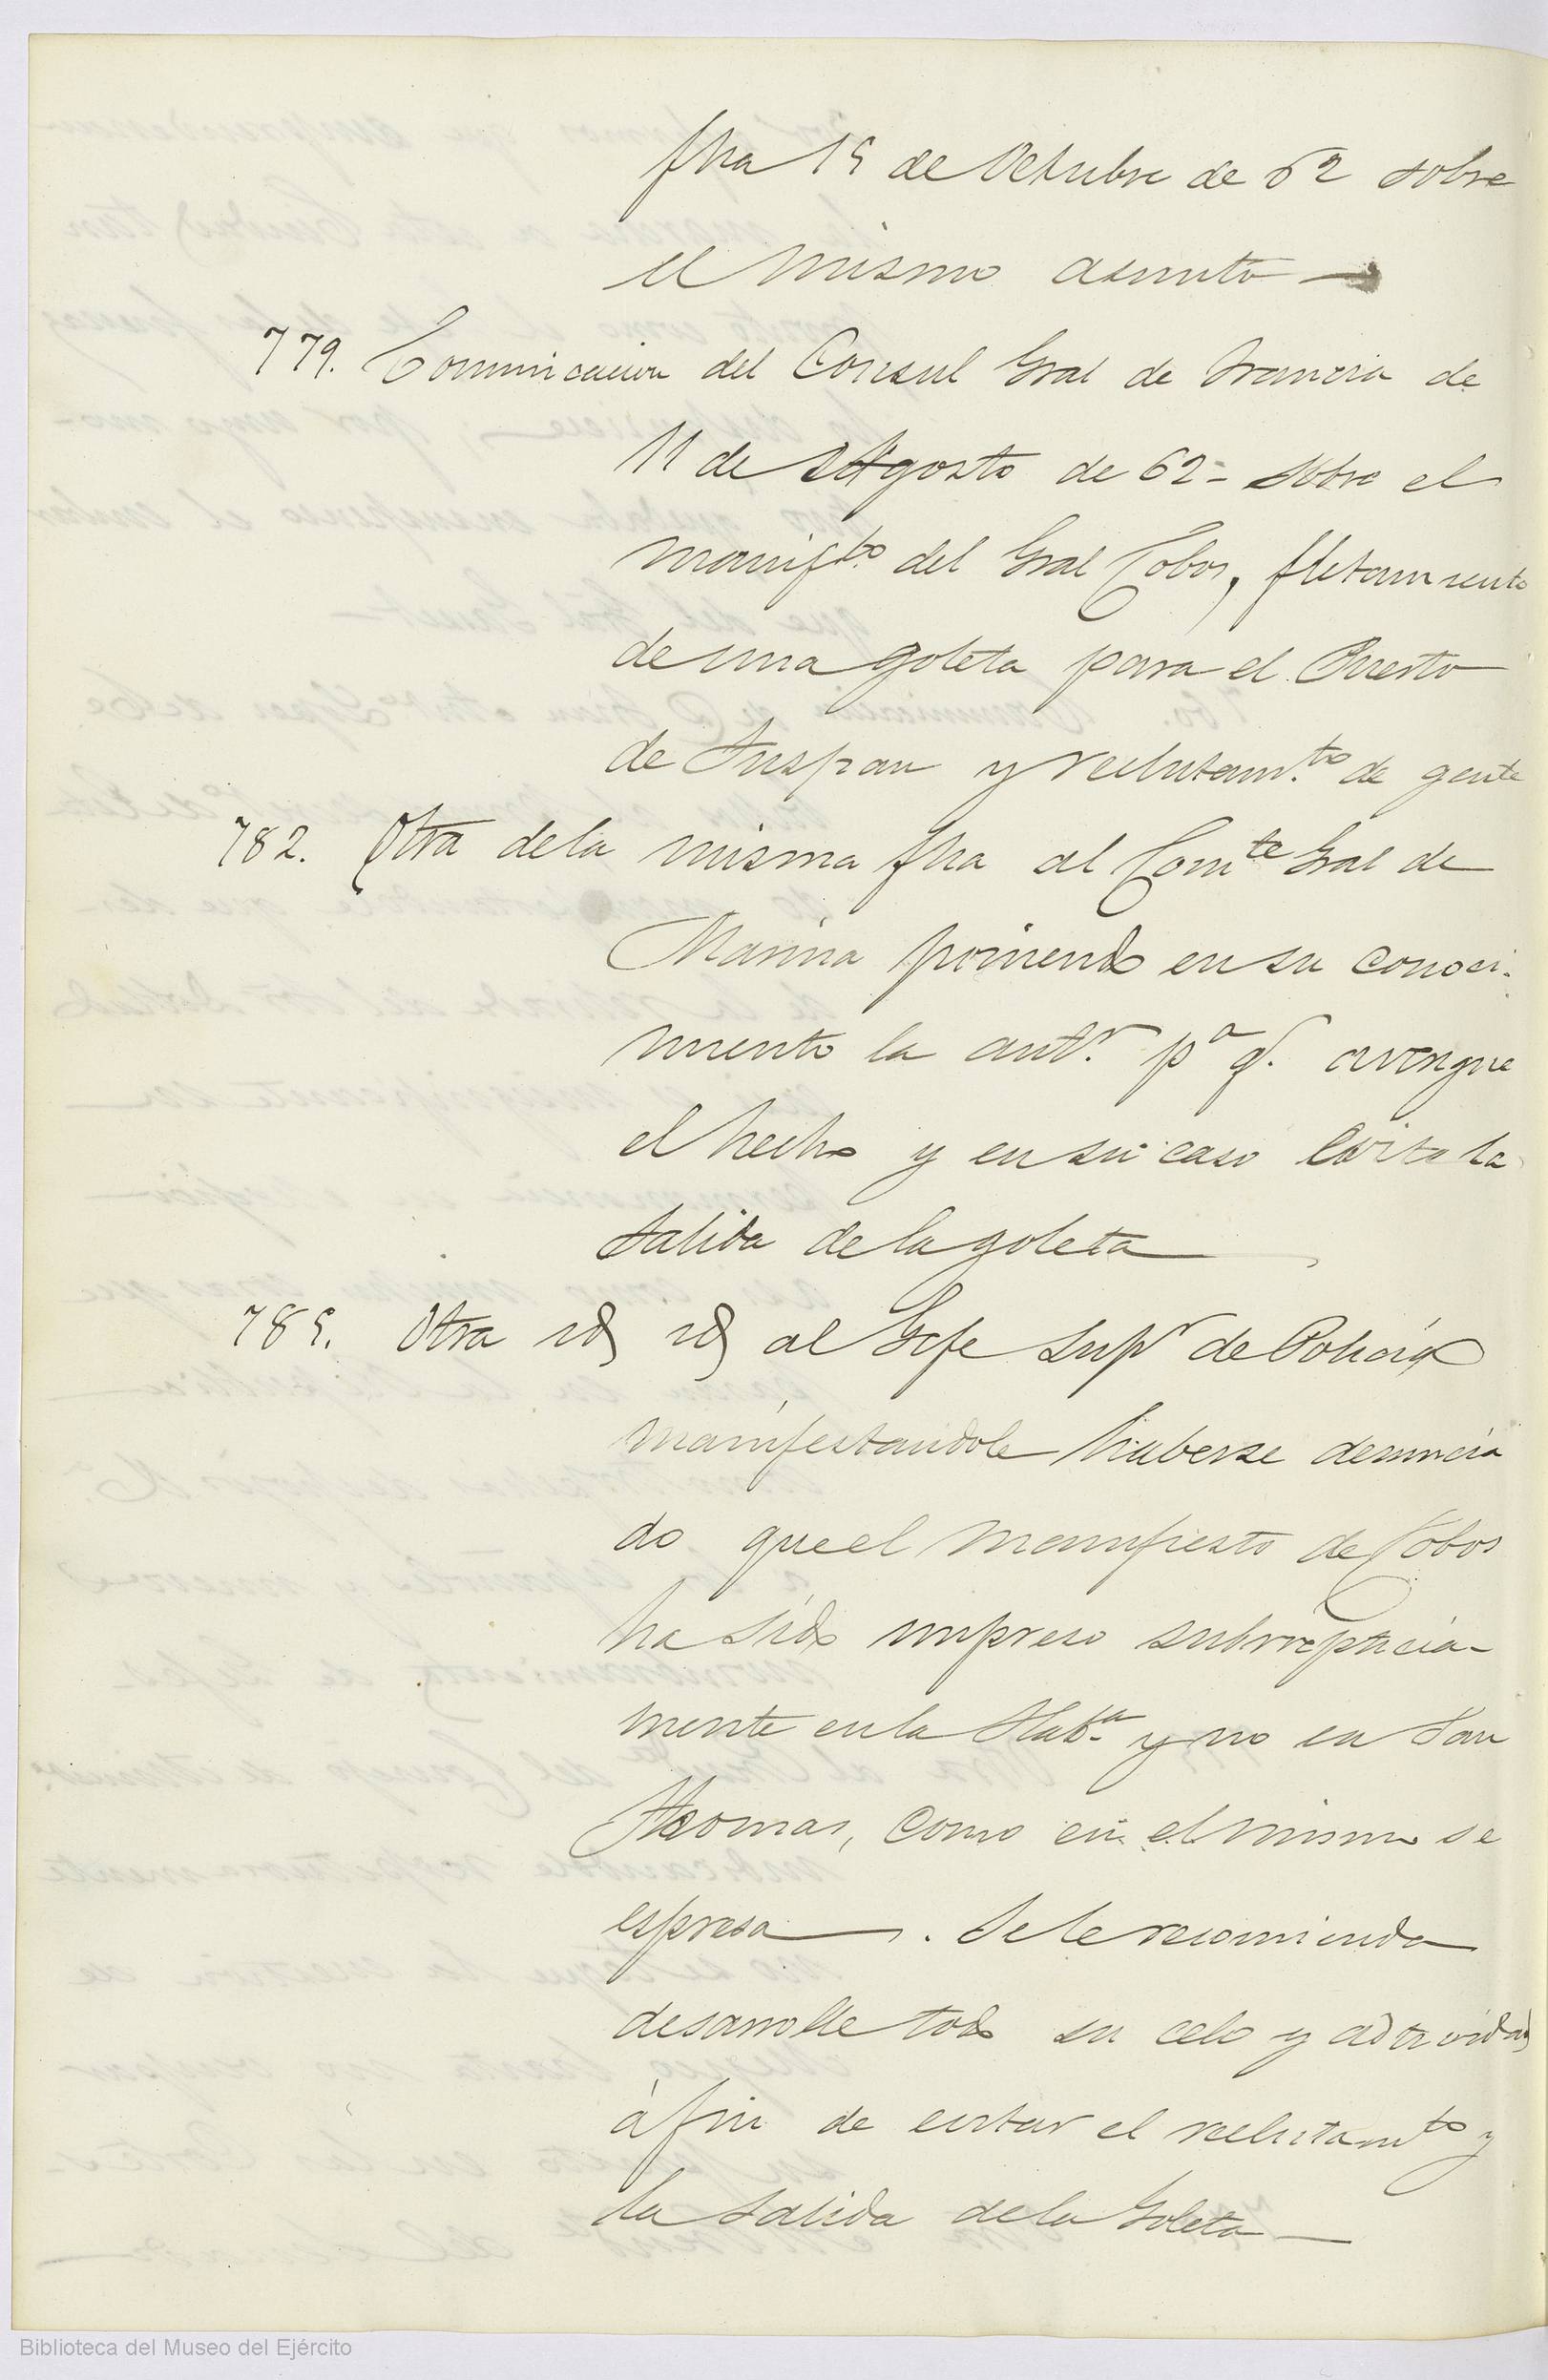 fha 15 de Octubre de 62 sobre
el mismo asunto —
779. Comunicacion del Consul Gral de Francia de
11 de Agosto de 62 - sobre el
manifto. del Gral Cobos, fletamiento
de una goleta para el Puerto
de Tuspan y reclutam.to de gente
782. Otra de la misma fha al Comte Gral de
Marina poniendo en su conoci-
miento la antr. pa q. averigue
el hecho y en su caso evite la
salida de la goleta
785. Otra id id al Gefe Supr de Policía
manifestandole haberse denuncia
do que el manifiesto de Cobos
ha sido impreso subrepticia-
mente en la Haba. y no en San
Thomas, como en el mismo se
espresa —. Se le recomienda
desarrolle todo su celo y actividad
á fin de evitar el reclutamto y
la salida de la Goleta —
Biblioteca del Museo del Ejército